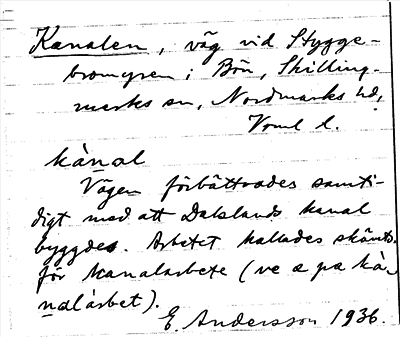 Kanalen, väg vid Stygge-
bromyren i Bön, Skilling-
marks sn, Nordmarks hd,
Vrml l.
kànal
Vägen förbättrades samti-
digt med att Dalslands kanal
byggdes. Arbetet kallades skämts.
för kanalarbete (ve a pa kà-
nalàrbet).
E. Andersson 1936.